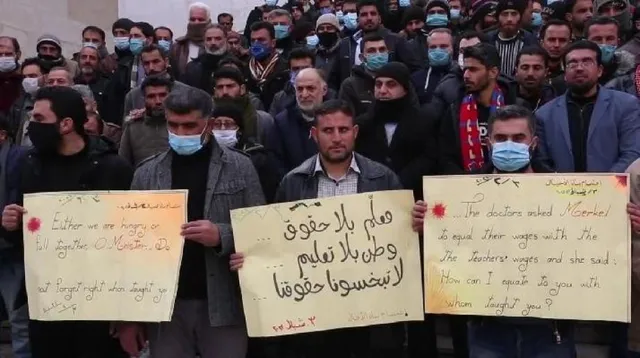 Either we are hungry or
full together, O Minister. Do
not Forget right whon taught you
معلّم بلا حقوق...
وطن بلا تعليم...
لا تبخسونا حقوقنا...
...The doctors asked Merkel
to equal their wages with the
the teachers' wages and she said:
How can I equate to you with
whom taught you?